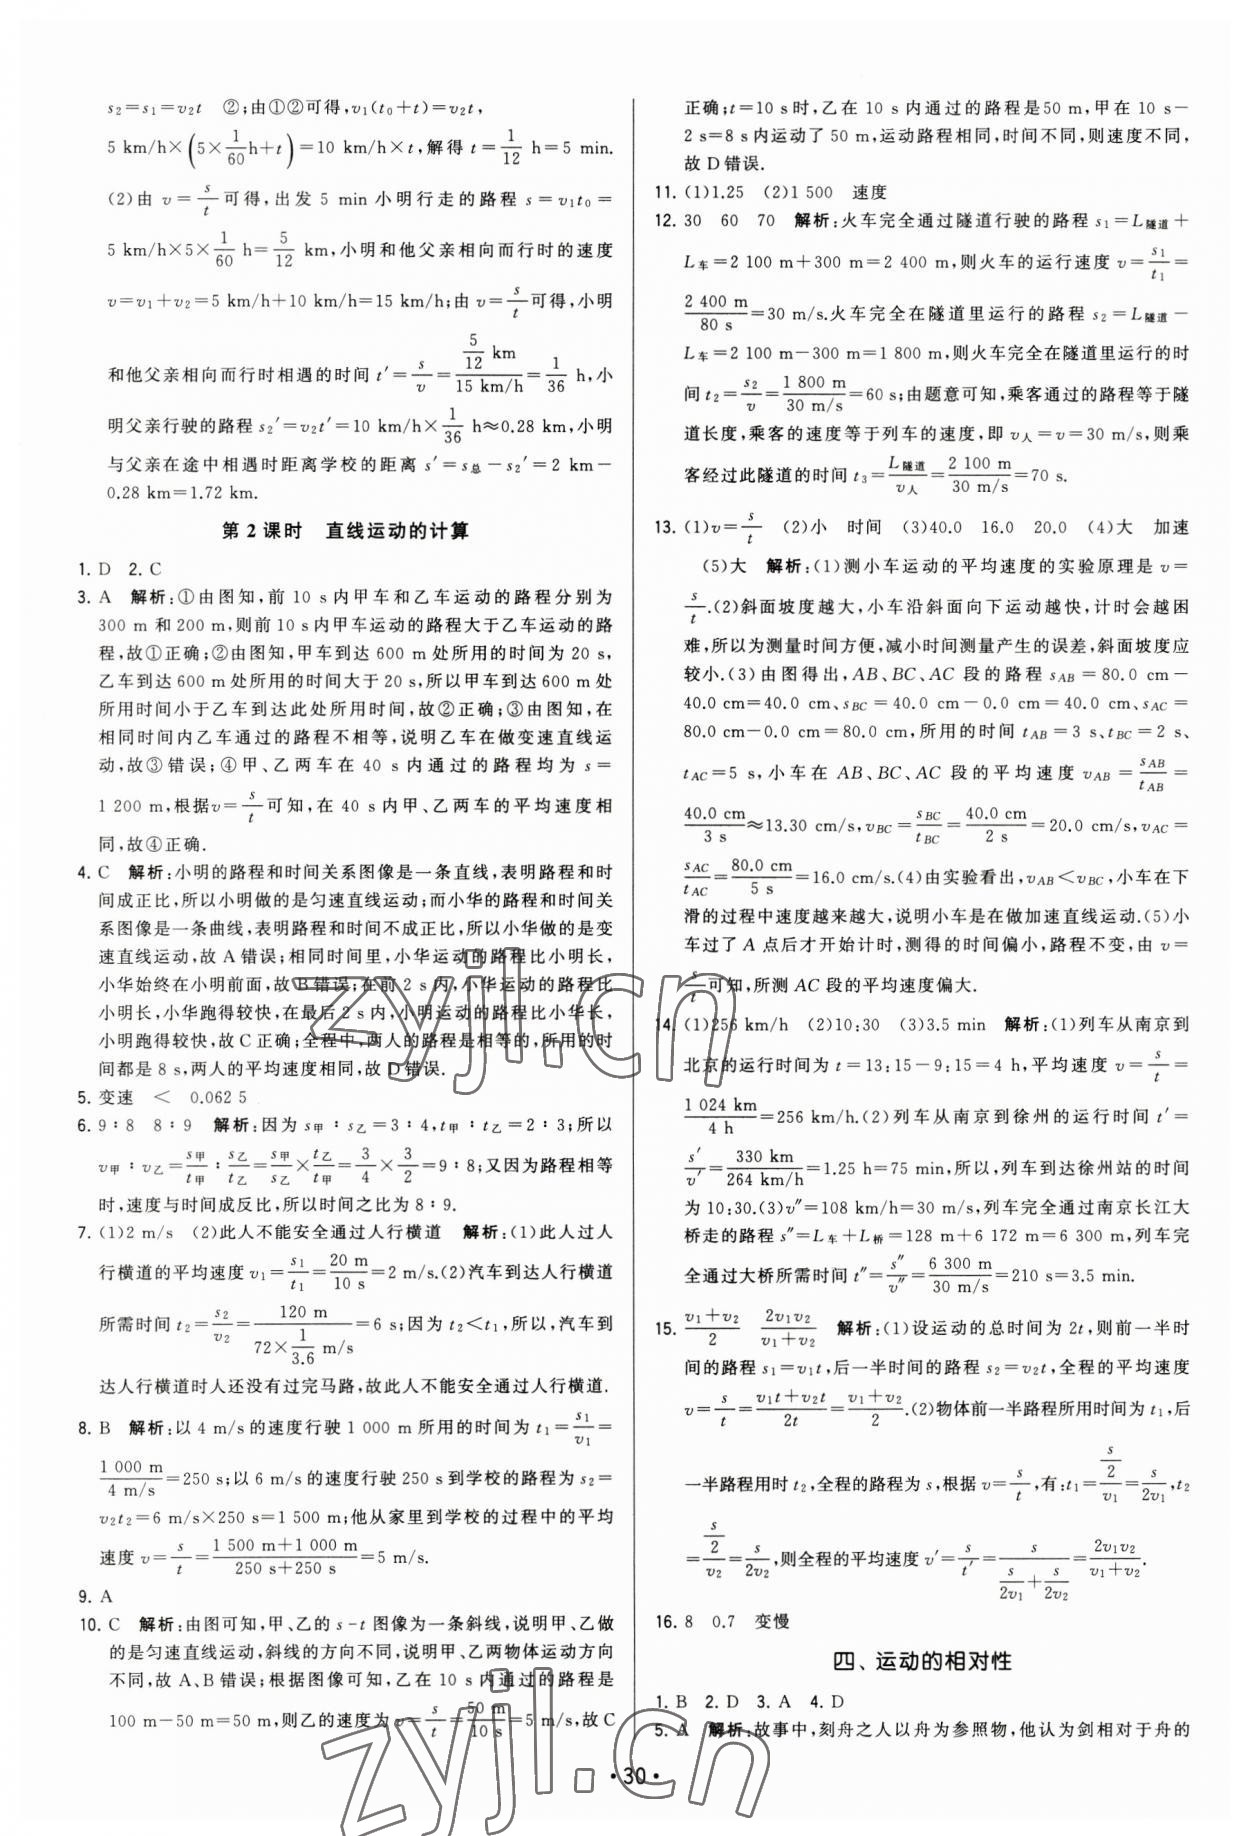 s₂=s₁=v₂t　②;由①②可得,v₁(t₀+t)=v₂t,
5 km/h×(5×1/60 h+t)=10 km/h×t,解得 t=1/12 h=5 min.
(2)由 v=s/t可得,出发 5 min 小明行走的路程 s=v₁t₀=
5 km/h×5×1/60 h=5/12 km,小明和他父亲相向而行时的速度
v=v₁+v₂=5 km/h+10 km/h=15 km/h;由 v=s/t可得,小明
和他父亲相向而行时相遇的时间 t′=s/v=(5/12 km)/(15 km/h)=1/36 h,小
明父亲行驶的路程 s₂′=v₂t′=10 km/h×1/36 h≈0.28 km,小明
与父亲在途中相遇时距离学校的距离 s′=s总-s₂′=2 km-
0.28 km=1.72 km.
第 2 课时　直线运动的计算
1. D　2. C
3. A　解析:①由图知,前 10 s内甲车和乙车运动的路程分别为
300 m 和 200 m,则前 10 s内甲车运动的路程大于乙车运动的路
程,故①正确;②由图知,甲车到达 600 m 处所用的时间为 20 s,
乙车到达 600 m 处所用的时间大于 20 s,所以甲车到达 600 m 处
所用时间小于乙车到达此处所用时间,故②正确;③由图知,在
相同时间内乙车通过的路程不相等,说明乙车在做变速直线运
动,故③错误;④甲、乙两车在 40 s内通过的路程均为 s=
1 200 m,根据v=s/t可知,在 40 s内甲、乙两车的平均速度相
同,故④正确.
4. C　解析:小明的路程和时间关系图像是一条直线,表明路程和时
间成正比,所以小明做的是匀速直线运动;而小华的路程和时间关
系图像是一条曲线,表明路程和时间不成正比,所以小华做的是变
速直线运动,故 A 错误;相同时间里,小华运动的路程比小明长,
小华始终在小明前面,故 B 错误;在前 2 s内,小华运动的路程比
小明长,小华跑得较快,在最后 2 s内,小明运动的路程比小华长,
小明跑得较快,故 C 正确;全程中,两人的路程是相等的,所用的时
间都是 8 s,两人的平均速度相同,故 D 错误.
5. 变速　<　0.062 5
6. 9∶8　8∶9　解析:因为 s甲∶s乙=3∶4,t甲∶t乙=2∶3;所以
v甲∶v乙=s甲/t甲∶s乙/t乙=s甲/s乙×t乙/t甲=3/4×3/2=9∶8;又因为路程相等
时,速度与时间成反比,所以时间之比为 8∶9.
7. (1)2 m/s　(2)此人不能安全通过人行横道　解析:(1)此人过人
行横道的平均速度 v₁=s₁/t₁=20 m/10 s=2 m/s.(2)汽车到达人行横道
所需时间 t₂=s₂/v₂=120 m/(72×1/3.6 m/s)=6 s;因为 t₂<t₁,所以,汽车到
达人行横道时人还没有过完马路,故此人不能安全通过人行横道.
8. B　解析:以 4 m/s 的速度行驶 1 000 m 所用的时间为 t₁=s₁/v₁=
1 000 m/4 m/s=250 s;以 6 m/s的速度行驶 250 s到学校的路程为 s₂=
v₂t₂=6 m/s×250 s=1 500 m;他从家里到学校的过程中的平均
速度 v=s/t=(1 500 m+1 000 m)/(250 s+250 s)=5 m/s.
9. A
10. C　解析:由图可知,甲、乙的 s-t 图像为一条斜线,说明甲、乙做
的是匀速直线运动,斜线的方向不同,说明甲、乙两物体运动方向
不同,故 A、B 错误;根据图像可知,乙在 10 s内通过的路程是
100 m-50 m=50 m,则乙的速度为 v=s/t=50 m/10 s=5 m/s,故 C
正确;t=10 s时,乙在 10 s内通过的路程是50 m,甲在 10 s-
2 s=8 s内运动了 50 m,运动路程相同,时间不同,则速度不同,
故 D 错误.
11. (1)1.25　(2)1 500　速度
12. 30　60　70　解析:火车完全通过隧道行驶的路程 s₁=L隧道+
L车=2 100 m+300 m=2 400 m,则火车的运行速度 v=s₁/t₁=
2 400 m/80 s=30 m/s.火车完全在隧道里运行的路程 s₂=L隧道-
L车=2 100 m-300 m=1 800 m,则火车完全在隧道里运行的时
间 t₂=s₂/v=1 800 m/30 m/s=60 s;由题意可知,乘客通过的路程等于隧
道长度,乘客的速度等于列车的速度,即 v人=v=30 m/s,则乘
客经过此隧道的时间 t₃=L隧道/v人=2 100 m/30 m/s=70 s.
13. (1)v=s/t　(2)小　时间　(3)40.0　16.0　20.0　(4)大　加速
(5)大　解析:(1)测小车运动的平均速度的实验原理是 v=
s/t.(2)斜面坡度越大,小车沿斜面向下运动越快,计时会越困
难,所以为测量时间方便,减小时间测量产生的误差,斜面坡度应
较小.(3)由图得出,AB、BC、AC 段的路程 sAB=80.0 cm-
40.0 cm=40.0 cm、sBC=40.0 cm-0.0 cm=40.0 cm、sAC=
80.0 cm-0.0 cm=80.0 cm,所用的时间 tAB=3 s、tBC=2 s、
tAC=5 s,小车在 AB、BC、AC 段的平均速度 vAB=sAB/tAB=
40.0 cm/3 s≈13.30 cm/s,vBC=sBC/tBC=40.0 cm/2 s=20.0 cm/s,vAC=
sAC/tAC=80.0 cm/5 s=16.0 cm/s.(4)由实验看出,vAB<vBC,小车在下
滑的过程中速度越来越大,说明小车是在做加速直线运动.(5)小
车过了 A 点后才开始计时,测得的时间偏小,路程不变,由 v=
s/t可知,所测 AC 段的平均速度偏大.
14. (1)256 km/h　(2)10:30　(3)3.5 min　解析:(1)列车从南京到
北京的运行时间为 t=13:15-9:15=4 h,平均速度 v=s/t=
1 024 km/4 h=256 km/h.(2)列车从南京到徐州的运行时间 t′=
s′/v′=330 km/264 km/h=1.25 h=75 min,所以,列车到达徐州站的时间
为 10:30.(3)v″=108 km/h=30 m/s,列车完全通过南京长江大
桥走的路程 s″=L车+L桥=128 m+6 172 m=6 300 m,列车完
全通过大桥所需时间 t″=s″/v″=6 300 m/30 m/s=210 s=3.5 min.
15. (v₁+v₂)/2　2v₁v₂/(v₁+v₂)　解析:(1)设运动的总时间为 2t,则前一半时
间的路程 s₁=v₁t,后一半时间的路程 s₂=v₂t,全程的平均速度
v=s/t=(v₁t+v₂t)/2t=(v₁+v₂)/2.(2)物体前一半路程所用时间为 t₁,后
一半路程用时 t₂,全程的路程为 s,根据 v=s/t,有:t₁=(s/2)/v₁=s/2v₁,t₂
=(s/2)/v₂=s/2v₂,则全程的平均速度 v′=s/t′=s/(s/2v₁+s/2v₂)=2v₁v₂/(v₁+v₂).
16. 8　0.7　变慢
四、运动的相对性
1. B　2. D　3. A　4. D
5. A　解析:故事中,刻舟之人以舟为参照物,他认为剑相对于舟的
·30·
zyjl.cn
zyjl.cn